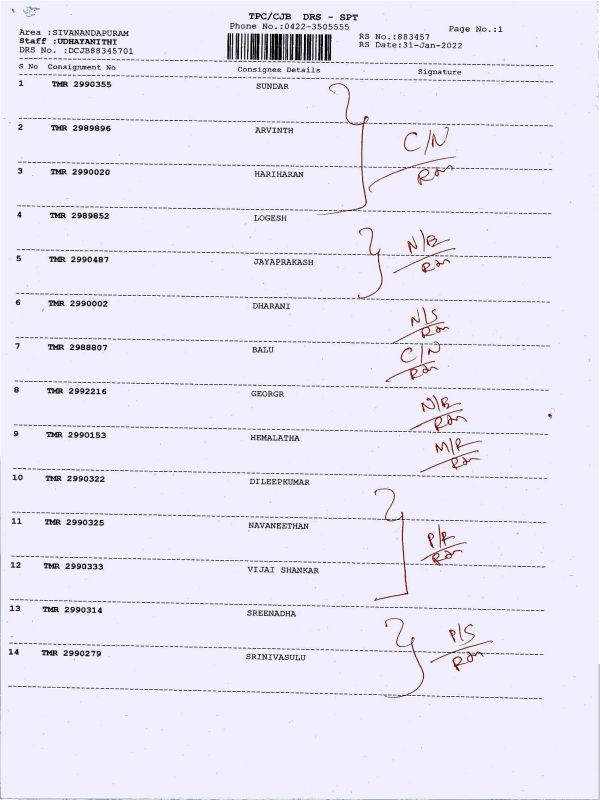 TPC/CJB DRS - SPT
Phone No.:0422-3505555
Page No.:1
Area :SIVANANDAPURAM
Staff :UDHAYANITHI
DRS No. :DCJB88345701
RS No.:883457
RS Date:31-Jan-2022
S No Consignment No Consignee Details Signature
1 TMR 2990355 SUNDAR
2 TMR 2989896 ARVINTH
C/N
Ram
3 TMR 2990020 HARIHARAN
4 TMR 2989852 LOGESH
N/B
Ram
5 TMR 2990487 JAYAPRAKASH
6 TMR 2990002 DHARANI
N/S
Ram
7 TMR 2988807 BALU
C/N
Ram
8 TMR 2992216 GEORGR
N/B
Ram
9 TMR 2990153 HEMALATHA
M/R
Ram
10 TMR 2990322 DILEEPKUMAR
11 TMR 2990325 NAVANEETHAN
P/R
Ram
12 TMR 2990333 VIJAI SHANKAR
13 TMR 2990314 SREENADHA
P/S
Ram
14 TMR 2990279 SRINIVASULU